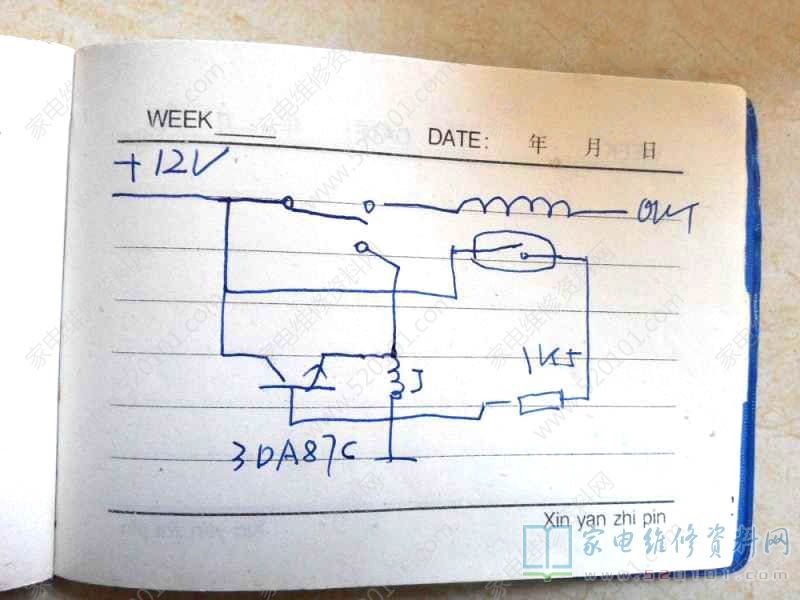 WEEK
DATE: 年 月 日
+12V
OUT
1K5
J
3DA87C
Xin yan zhi pin
家电维修资料网
www.520101.com